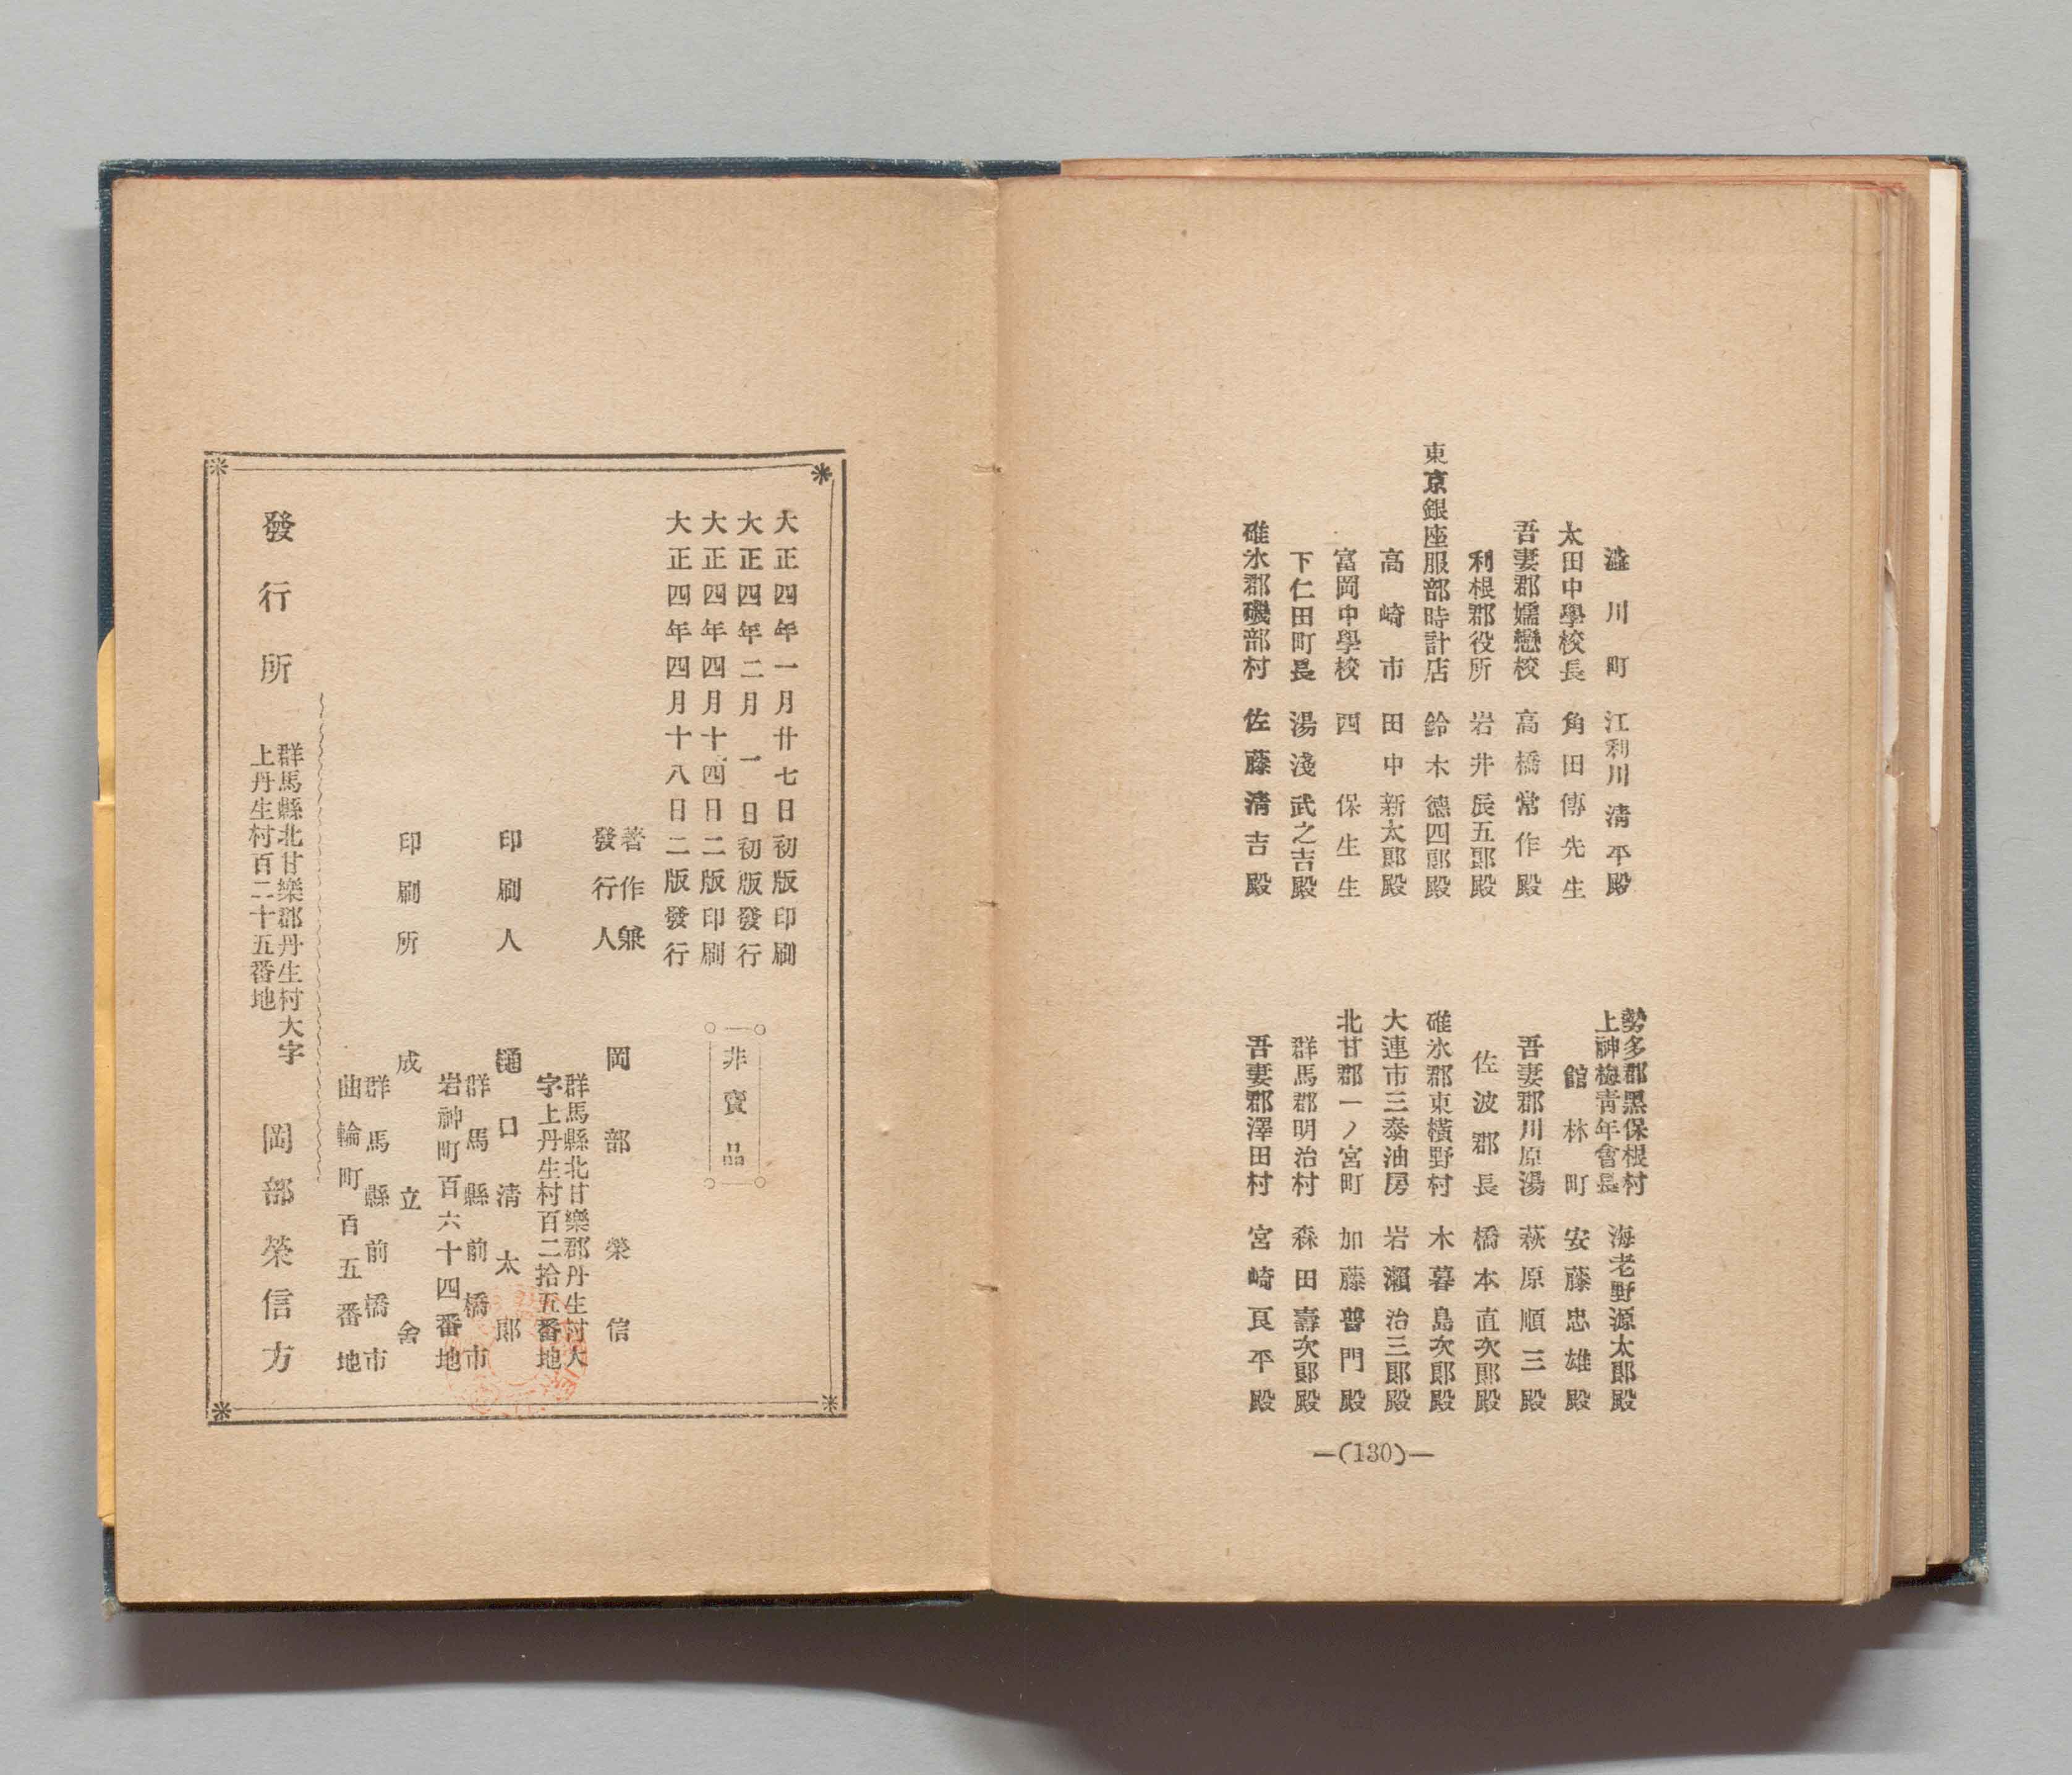 澁川町 江利川淸平殿
太田中學校長 角田傳先生
吾妻郡嬬戀校 高橋常作殿
利根郡役所 岩井辰五郞殿
東京銀座服部時計店 鈴木德四郞殿
高崎市 田中新太郞殿
富岡中學校 四保生生
下仁田町長 湯淺武之吉殿
碓氷郡磯部村 佐藤淸吉殿
勢多郡黑保根村
上神梅靑年會長 海老野源太郞殿
館林町 安藤忠雄殿
吾妻郡川原湯 萩原順三殿
佐波郡長 橋本直次郞殿
碓氷郡東橫野村 木暮島次郞殿
大連市三泰油房 岩瀨治三郞殿
北甘郡一ノ宮町 加藤普門殿
群馬郡明治村 森田壽次郞殿
吾妻郡澤田村 宮崎良平殿
—(130)—
大正四年一月廿七日初版印刷
大正四年二月一日初版發行
大正四年四月十四日二版印刷
大正四年四月十八日二版發行
非賣品
著作兼
發行人 岡部榮信
群馬縣北甘樂郡丹生村大
字上丹生村百二拾五番地
印刷人 樋口淸太郞
群馬縣前橋市
岩神町百六十四番地
印刷所 成立舍
群馬縣前橋市
曲輪町百五番地
發行所
群馬縣北甘樂郡丹生村大字
上丹生村百二十五番地
岡部榮信方